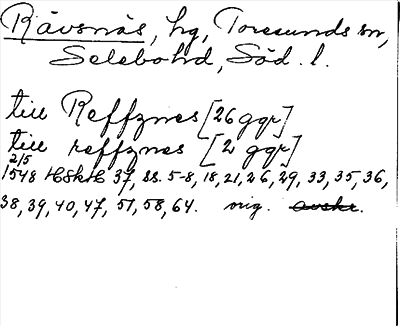 Rävsnäs, hg, Toresunds sn,
Selebohd, Söd. l.
till Reffznes [26 ggr]
till reffznes [2 ggr]
2/5
1548 HSkH 37, ss. 5-8, 18, 21, 26, 29, 33, 35, 36,
38, 39, 40, 47, 51, 58, 64. orig. avskr.